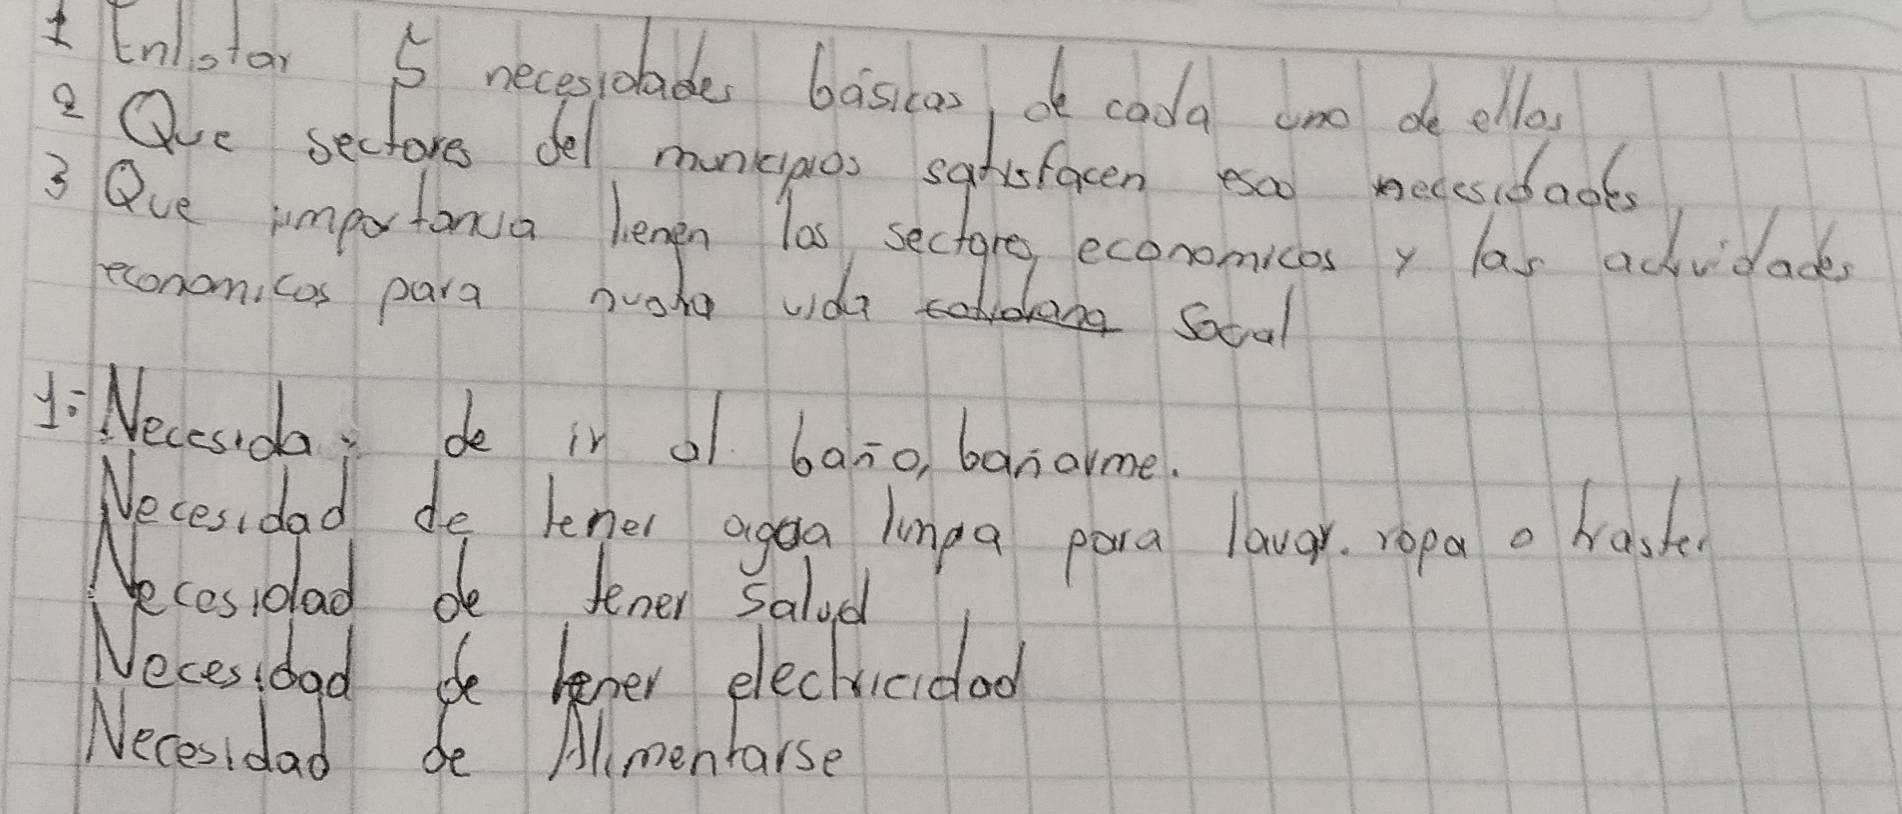 1 Enlistar 5 necesidades básicas, de cada uno de ellos
2 Que sectores del municipios satisfacen esas necesidades
3 Que importancia tienen los sectores economicos y las actividades
economicos para nuestra vida cotidiana social
1:- Necesida: de ir al baño, bañarme.
Necesidad de tener agua limpa para lavar. ropa o traster
Necesidad de tener salud
Necesidad de tener electricidad
Necesidad de Alimentarse